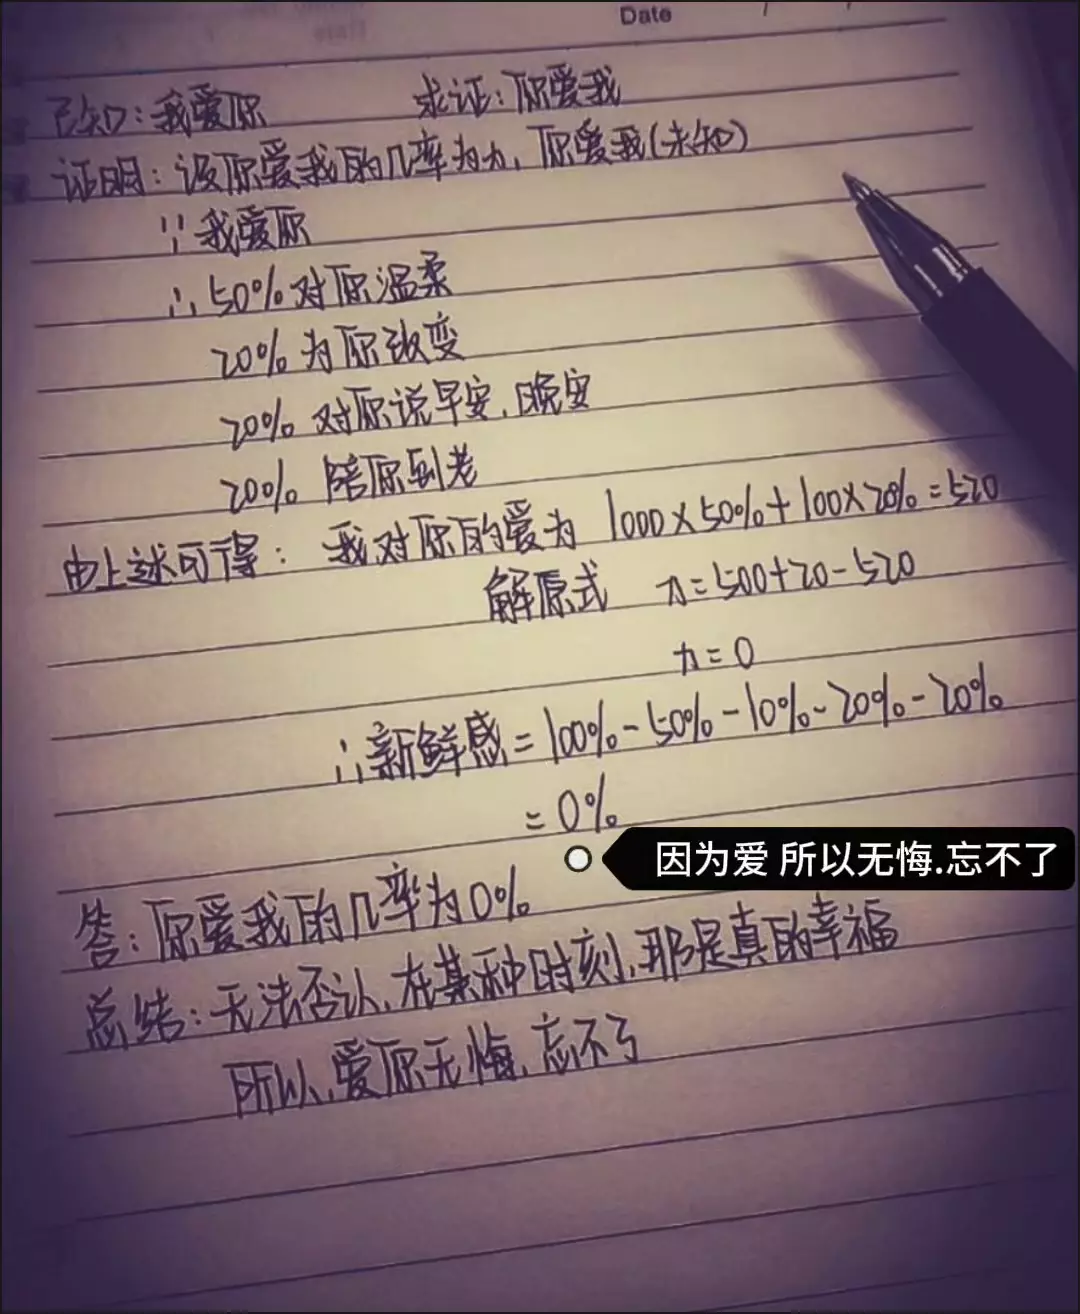 Date
已知:我爱你 求证:你爱我
证明:设你爱我的几率为x,你爱我(未知)
∵我爱你
∴50%对你温柔
20%为你改变
20%对你说早安,晚安
20%陪你到老
由上述可得:我对你的爱为1000×50%+100×20%=520
解原式 x=500+20-520
x=0
∴新鲜感=100%-50%-10%-20%-20%
=0%
因为爱 所以无悔.忘不了
答:你爱我的几率为0%
总结:无法否认,在某种时刻,那是真的幸福
所以,爱你无悔,忘不了